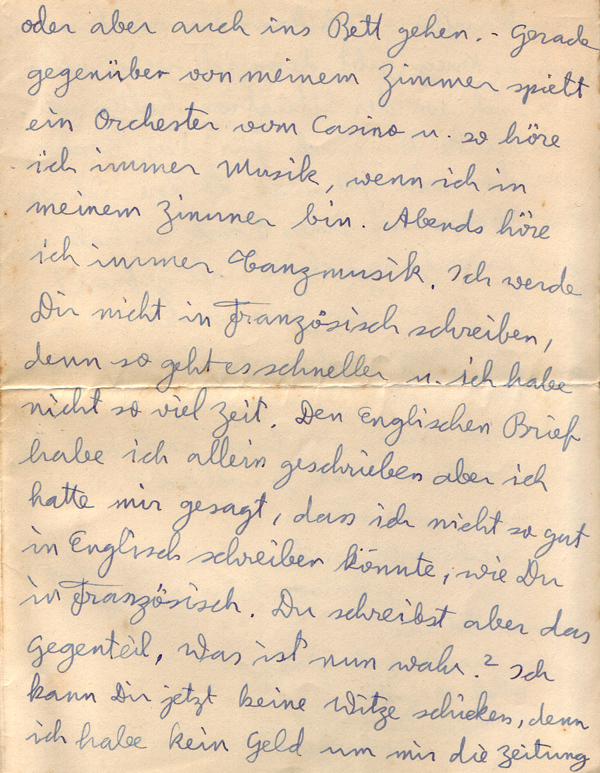 oder aber auch ins Bett gehen. - Gerade
gegenüber von meinem Zimmer spielt
ein Orchester vom Casino u. so höre
ich immer Musik, wenn ich in
meinem Zimmer bin. Abends höre
ich immer Tanzmusik. Ich werde
Dir nicht in Französisch schreiben,
denn so geht es schneller u. ich habe
nicht so viel Zeit. Den Englischen Brief
habe ich allein geschrieben aber ich
hatte mir gesagt, dass ich nicht so gut
in Englisch schreiben könnte, wie Du
in Französisch. Du schreibst aber das
Gegenteil, Was ist nun wahr.? Ich
kann Dir jetzt keine Witze schicken, denn
ich habe kein Geld um mir die Zeitung